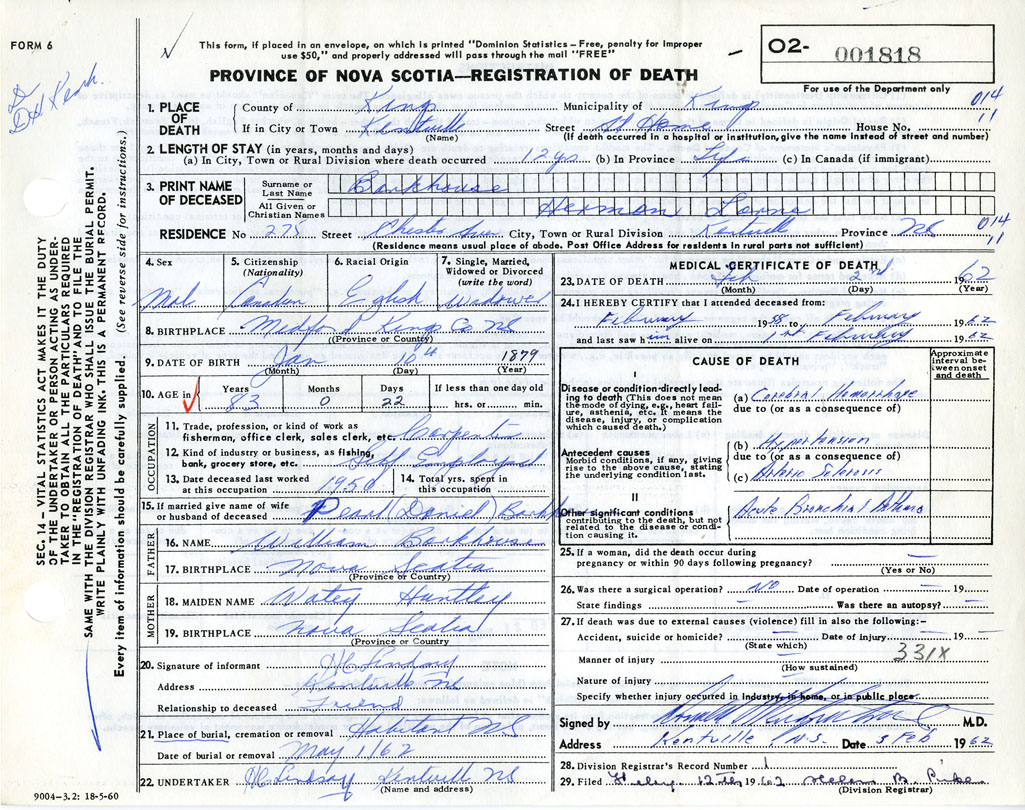 FORM 6
This form, if placed in an envelope, on which is printed "Dominion Statistics – Free, penalty for improper
use $50," and properly addressed will pass through the mail "FREE"
O2- 001818
For use of the Department only
PROVINCE OF NOVA SCOTIA—REGISTRATION OF DEATH
1. PLACE OF DEATH
County of Kings Municipality of Kings 014
If in City or Town Kentville (Name) Street At Home House No. 11
(If death occurred in a hospital or institution, give the name instead of street and number)
2. LENGTH OF STAY (in years, months and days)
(a) In City, Town or Rural Division where death occurred 12 ys. (b) In Province Life (c) In Canada (if immigrant)
3. PRINT NAME OF DECEASED
Surname or Last Name Barkhouse
All Given or Christian Names Herman Lorne
RESIDENCE No 275 Street Chester Ave City, Town or Rural Division Kentville Province NS 014
11
(Residence means usual place of abode. Post Office Address for residents in rural parts not sufficient)
4. Sex Male
5. Citizenship (Nationality) Canadian
6. Racial Origin English
7. Single, Married, Widowed or Divorced (write the word) Widower
8. BIRTHPLACE Medford Kings Co NS
(Province or County)
9. DATE OF BIRTH Jan 10th 1879
(Month) (Day) (Year)
10. AGE in Years Months Days If less than one day old
83 0 22 hrs. or min.
OCCUPATION
11. Trade, profession, or kind of work as
fisherman, office clerk, sales clerk, etc. Carpenter
12. Kind of industry or business, as fishing,
bank, grocery store, etc. Self Employed
13. Date deceased last worked
at this occupation 1950
14. Total yrs. spent in
this occupation
15. If married give name of wife
or husband of deceased Pearl (Daniel) Barkhouse
FATHER
16. NAME William Barkhouse
17. BIRTHPLACE Nova Scotia
(Province or Country)
MOTHER
18. MAIDEN NAME Watey Huntley
19. BIRTHPLACE Nova Scotia
(Province or Country)
20. Signature of informant H C Lindsay
Address Kentville NS
Relationship to deceased Friend
21. Place of burial, cremation or removal Habitant NS
Date of burial or removal May 1/62
22. UNDERTAKER H C Lindsay Kentville NS
(Name and address)
9004-3.2: 18-5-60
MEDICAL CERTIFICATE OF DEATH
23. DATE OF DEATH Feb 2nd 1962
(Month) (Day) (Year)
24. I HEREBY CERTIFY that I attended deceased from:
February 1958 to February 1962
and last saw him alive on 1st February 1962
CAUSE OF DEATH
Approximate interval between onset and death
I
Disease or condition directly leading to death (This does not mean the mode of dying, e.g., heart failure, asthenia, etc. It means the disease, injury, or complication which caused death.)
(a) Cerebral Hemorrhage
due to (or as a consequence of)
Antecedent causes
Morbid conditions, if any, giving rise to the above cause, stating the underlying condition last.
(b) Hypertension
due to (or as a consequence of)
(c) Arterio Sclerosis
II
Other significant conditions
contributing to the death, but not related to the disease or condition causing it.
Acute Bronchial Asthma
25. If a woman, did the death occur during
pregnancy or within 90 days following pregnancy? —
(Yes or No)
26. Was there a surgical operation? NO Date of operation — 19
State findings — Was there an autopsy? —
27. If death was due to external causes (violence) fill in also the following:-
Accident, suicide or homicide? — Date of injury — 19
(State which)
331X
Manner of injury
(How sustained)
Nature of injury
Specify whether injury occurred in Industry, in home, or in public place
Signed by M.D.
Address Kentville, N.S. Date 3 Feb 1962
28. Division Registrar's Record Number 1
29. Filed 12th 1962 Helen B.
(Division Registrar)
SEC. 14 – VITAL STATISTICS ACT MAKES IT THE DUTY
OF THE UNDERTAKER OR PERSON ACTING AS UNDER-
TAKER TO OBTAIN ALL THE PARTICULARS REQUIRED
IN THE "REGISTRATION OF DEATH" AND TO FILE THE
SAME WITH THE DIVISION REGISTRAR WHO SHALL ISSUE THE BURIAL PERMIT.
WRITE PLAINLY WITH UNFADING INK. THIS IS A PERMANENT RECORD.
Every item of information should be carefully supplied. (See reverse side for instructions.)